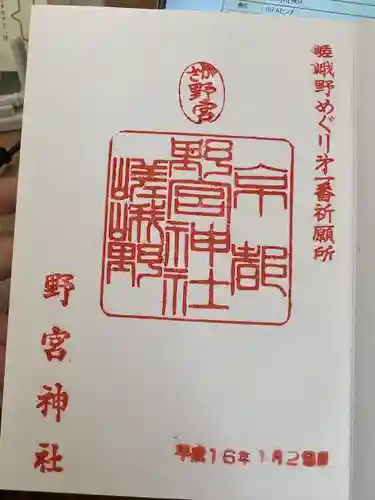 嵯峨野めぐり第一番祈願所
さが
野宮
京都
野宮神社
嵯峨野
野宮神社
平成16年1月2